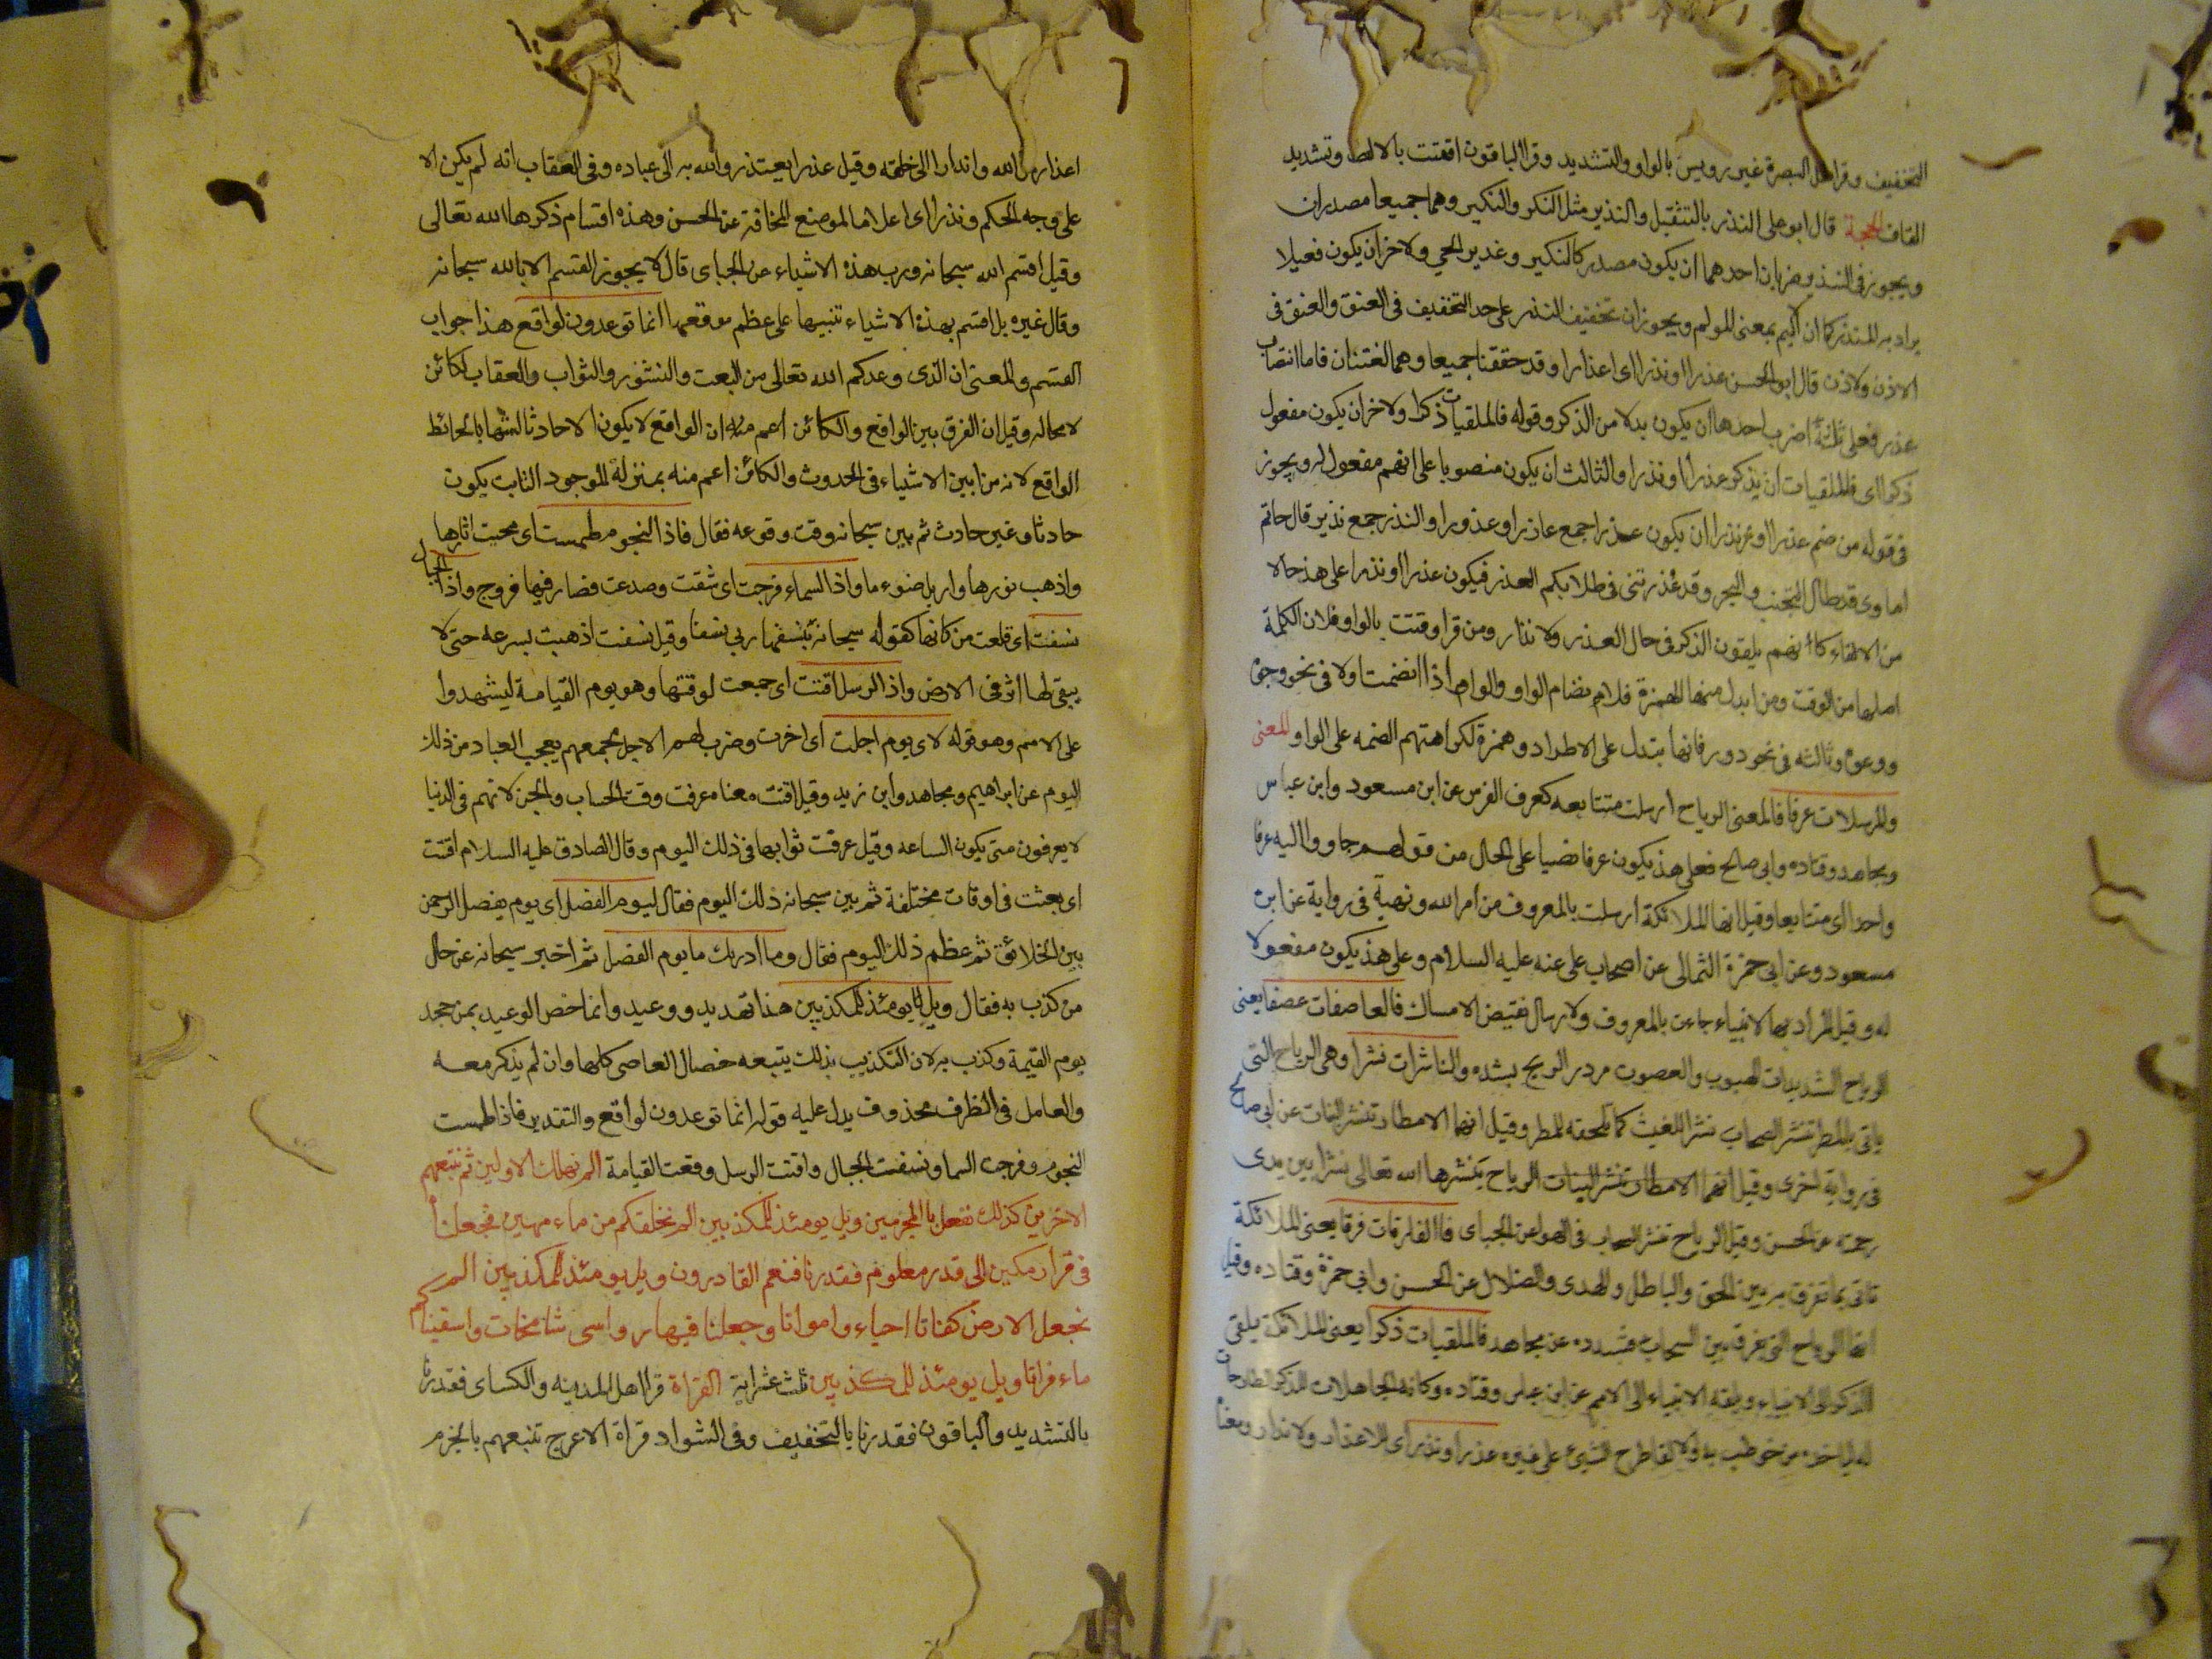 التخفيف وقرا اهل البصرة غير رويس بالواو والتشديد وقرا الباقون اقتت بالالف وتشديد
القاف الحجة قال ابو على النذر بالتثقيل والنذير مثل النكر والنكير وهما جميعا مصدران
ويجوز فى النذير ضربان احدهما ان يكون مصدر كالنكير وغدير الحي ولاخر ان يكون فعيلا
يراد به المنذر كما ان اليم بمعنى المولم ويجوز ان تخفيف النذر على حد التخفيف فى العنق والعنق فى
الاذن ولاذن قال ابو الحسن عذرا او نذرا اى اعذارا وقد حققنا جميعا وهما لغتان فاما انتصاب
عذر فعلى ثلثة اضرب احدها ان يكون بدلا من الذكر وقوله فالملقيات ذكرا ولاخر ان يكون مفعول
ذكرا اى فالملقيات ان يذكر عذرا او نذرا والثالث ان يكون منصوبا على انهم مفعول له ويجوز
فى قوله من ضم عذرا او نذرا ان يكون عذرا جمع عاذر او عذورا والنذر جمع نذير قال حاتم
اماوى قد طال التجنب والهجر وقد عذرتنى فى طلابكم العذر فيكون عذرا او نذرا على هذ حالا
من الالقاء كانهم يلقون الذكر فى حال العذر ولانذار ومن قرا وقتت بالواو فلان الكلمة
اصلها من الوقت ومن ابدل منها الهمزة فلانضمام الواو والواو اذا انضمت اولا فى نحو وجوه
ووعوه وثالثه فى نحو دور فانها تبدل على الاطراد همزة لكراهتهم الضمه على الواو المعنى
والمرسلات عرفا فالمعنى الرياح ارسلت متتابعه كعرف الفرس عن ابن مسعود وابن عباس
ومجاهد وقتاده وابى صالح فعلى هذ يكون عرفا نصبا على الحال من قولهم جاووا اليه عرفا
واحدا اى متتابعا وقيل انها الملائكة ارسلت بالمعروف من امر الله ونهيه فى رواية عن ابن
مسعود وعن ابى حمزة الثمالى عن اصحاب على عنه عليه السلام وعلى هذ يكون مفعولا
له وقيل المراد بها الانبياء جاءت بالمعروف ولارسال نقيض الامساك فالعاصفات عصفا يعنى
الرياح الشديدات الهبوب والعصوف مرور الريح بشده والناشرات نشرا وهى الرياح التى
ياتى بالمطر تنشر السحاب نشرا للغيث كما تلحقه للمطر وقيل انها الامطار تنشر النبات عن ابى صالح
فى رواية اخرى وقيل انها الامطار تنشر النبات الرياح ينشرها الله تعالى نشرا بين يدى
رحمته عن الحسن وقيل الرياح تنشر السحاب فى الهوا عن الجباى فاالفارقات فرقا يعنى الملائكة
تاتى بما تفرق به بين الحق والباطل والهدى والضلال عن الحسن وابى حمزة وقتاده وقيل
انها الرياح التى يفرق بين السحاب فتبدده عن مجاهد فالملقيات ذكرا يعنى الملائكة يلقى
الذكر الى الانبياء ويلقيه الانبياء الى الامم عن ابن عباس وقتاده وكانه الحاملات للذكر الطارحات
له لياخذه من خوطب به ولالقا طرح الشيئ على غيره عذرا او نذرا اى للاعذار ولانذار ومعناه
اعذار من الله وانذارا الى خلقه وقيل عذرا يعتذر والله به الى عباده وفى العقاب انه لم يكن الا
على وجه الحكم ونذرا اى اعلاما لموضع المخافة عن الحسن وهذه اقسام ذكرها الله تعالى
وقيل اقسم الله سبحانه ورب هذه الاشياء عن الجباى قال لا يجوز القسم الا بالله سبحانه
وقال غيره بل اقسم بهذه الاشياء تنبيها على عظم موقعها انما توعدون لواقع هذا جواب
القسم والمعنى ان الذى وعدكم الله تعالى من البعث والنشور والثواب والعقاب لكائن
لا محاله وقيل ان الفرق بين الواقع والكائن اعم منه ان الواقع لا يكون الا حادثا تشبها بالحائط
الواقع لانه من ابين الاشياء فى الحدوث والكائن اعم منه بمنزلة الموجود الثابت يكون
حادثا وغير حادث ثم بين سبحانه وقت وقوعه فقال فاذا النجوم طمست اى محيت اثارها
واذهب نورها واريل ضوءها واذا السماء فرجت اى شقت وصدعت فصار فيها فروج واذا الجبال
نسفت اى قلعت من كانها كقوله سبحانه ينسفها ربى نسفا وقيل نسفت اذهبت بسرعه حتى لا
يبقى لها اثر فى الارض واذا الرسل اقتت اى جمعت لوقتها وهو يوم القيامة ليشهدوا
على الامم وهو قوله لاى يوم اجلت اى اخرت وضرب لهم الاجل بجمعهم يعجب العباد من ذلك
اليوم عن ابراهيم ومجاهد وابن زيد وقيل اقتت معناه عرفت وقت الحساب والجزا لانهم فى الدنيا
لا يعرفون متى يكون الساعه وقيل عرفت ثوابها فى ذلك اليوم وقال الصادق عليه السلام اقتت
اى بعثت فى اوقات مختلفة ثم بين سبحانه ذلك اليوم فقال ليوم الفصل اى يوم يفصل الرحمن
بين الخلائق ثم عظم ذلك اليوم فقال وما ادريك ما يوم الفصل ثم اخبر سبحانه عن حال
من كذب به فقال ويل يومئذ للمكذبين هذا تهديد ووعيد وانما خص الوعيد بمن جحد
يوم القيمة وكذب به لان التكذيب بذلك يتبعه خصال المعاصى كلها وان لم يذكر معه
والعامل فى الظرف محذوف يدل عليه قوله انما توعدون لواقع والتقدير فاذا طمست
النجوم وفرجت السما ونسفت الجبال واقتت الرسل وقعت القيامة الم نهلك الاولين ثم نتبعهم
الاخرين كذلك نفعل بالمجرمين ويل يومئذ للمكذبين الم نخلقكم من ماء مهين فجعلناه
فى قرار مكين الى قدر معلوم فقدرنا فنعم القادرون ويل يومئذ للمكذبين الم
نجعل الارض كفاتا احياء وامواتا وجعلنا فيها رواسى شامخات واسقيناكم
ماء فراتا ويل يومئذ للمكذبين ثلث عشر اية القراة قرا اهل المدينه والكساى فقدرنا
بالتشديد والباقون فقدرنا بالتخفيف وفى الشواد قراة الاعرج نتبعهم بالجزم